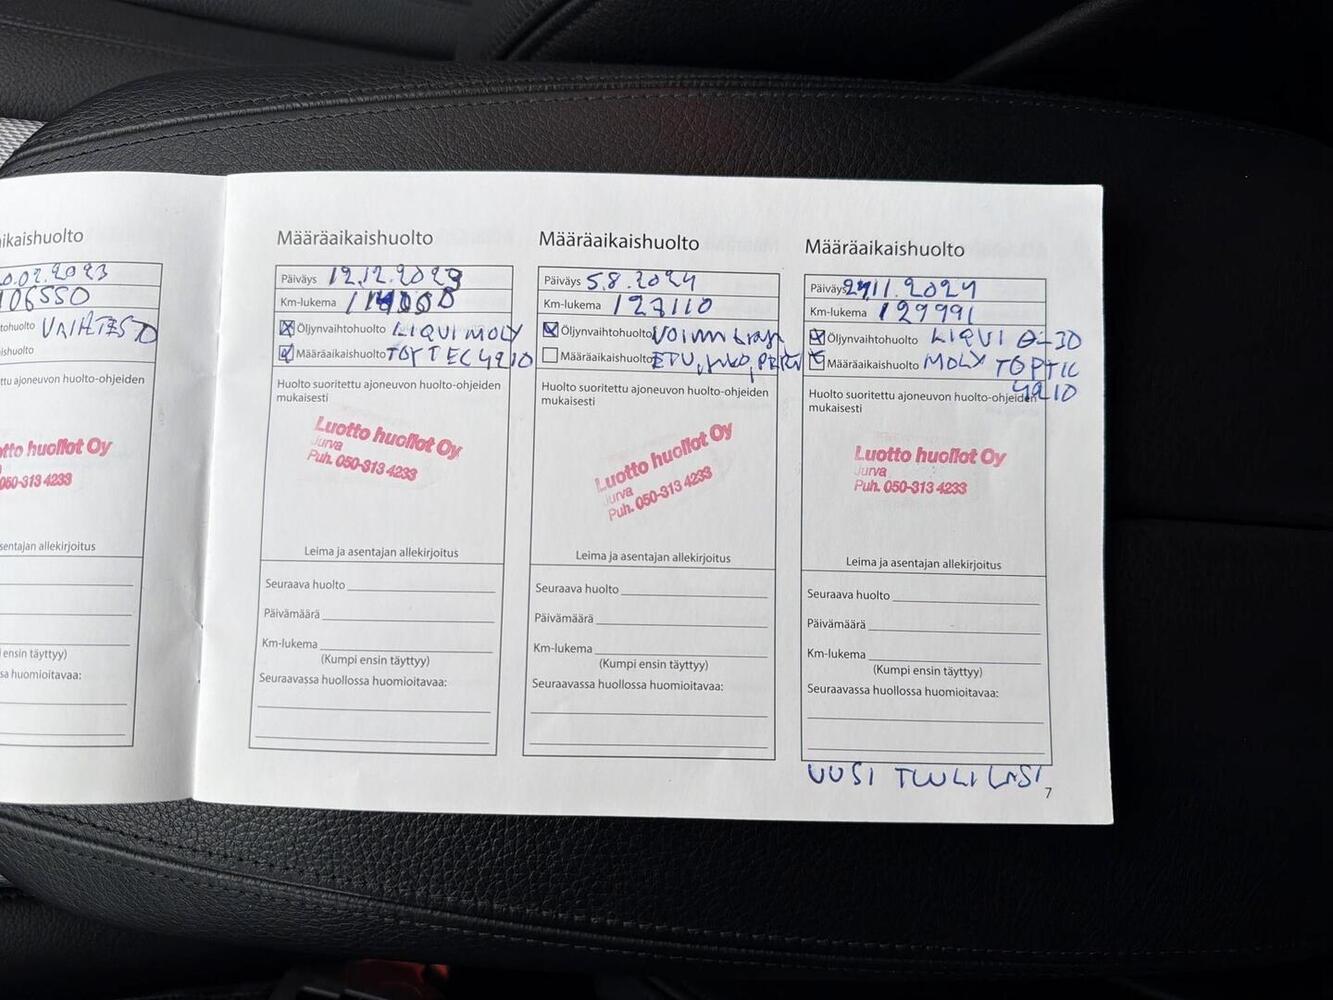 aikaishuolto
0.02.2023
106550
tohuolto
ishuolto
tettu ajoneuvon huolto-ohjeiden
tto huollot Oy
050-313 4233
sentajan allekirjoitus
ensin täyttyy)
sa huomioitavaa:
Määräaikaishuolto
Päiväys 12.12.2023
Km-lukema
Öljynvaihtohuolto LIQUI MOLY
Määräaikaishuolto TOPTEC 4210
Huolto suoritettu ajoneuvon huolto-ohjeiden
mukaisesti
Luotto huollot Oy
Jurva
Puh. 050-313 4233
Leima ja asentajan allekirjoitus
Seuraava huolto
Päivämäärä
Km-lukema
(Kumpi ensin täyttyy)
Seuraavassa huollossa huomioitavaa:
Määräaikaishuolto
Päiväys 5.8.2024
Km-lukema 127110
Öljynvaihtohuolto
Määräaikaishuolto ETU
Huolto suoritettu ajoneuvon huolto-ohjeiden
mukaisesti
Luotto huollot Oy
Jurva
Puh. 050-313 4233
Leima ja asentajan allekirjoitus
Seuraava huolto
Päivämäärä
Km-lukema
(Kumpi ensin täyttyy)
Seuraavassa huollossa huomioitavaa:
Määräaikaishuolto
Päiväys 2711.2024
Km-lukema 129991
Öljynvaihtohuolto LIQUI 0-30
Määräaikaishuolto MOLY TOPTIC
4210
Huolto suoritettu ajoneuvon huolto-ohjeiden
mukaisesti
Luotto huollot Oy
Jurva
Puh. 050-313 4233
Leima ja asentajan allekirjoitus
Seuraava huolto
Päivämäärä
Km-lukema
(Kumpi ensin täyttyy)
Seuraavassa huollossa huomioitavaa:
UUSI TUULILASI
7